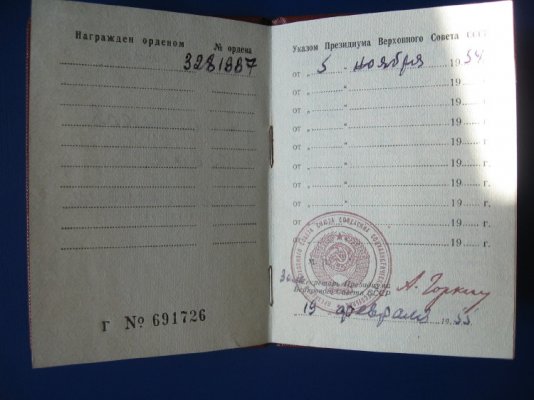 Награжден орденом
№ ордена
3281887
Г № 691726
Указом Президиума Верховного Совета СССР
от „ 5 " ноября 1954
от „ " 19 г.
от „ " 19 г.
от „ " 19 г.
от „ " 19 г.
от „ " 19 г.
от „ " 19 г.
от „ " 19 г.
от „ " 19 г.
Секретарь Президиума
Верховного Совета СССР
А. Горкин
19 февраля 1955